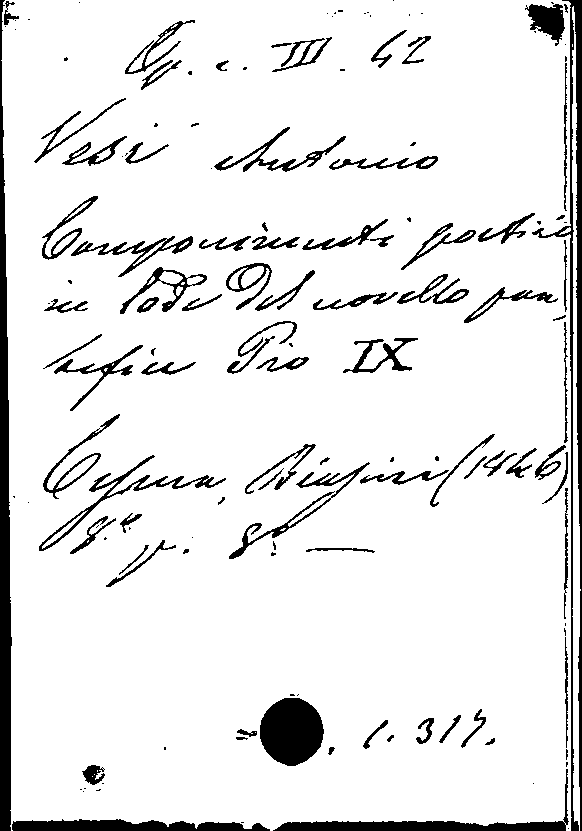 Op. c. III. 42
Vesi Antonio
Componimenti poetici
in lode del novello pon,
tefice Pio IX
Cesena, Biasini (1846)
8.° p. 8. —
. 1. 317.